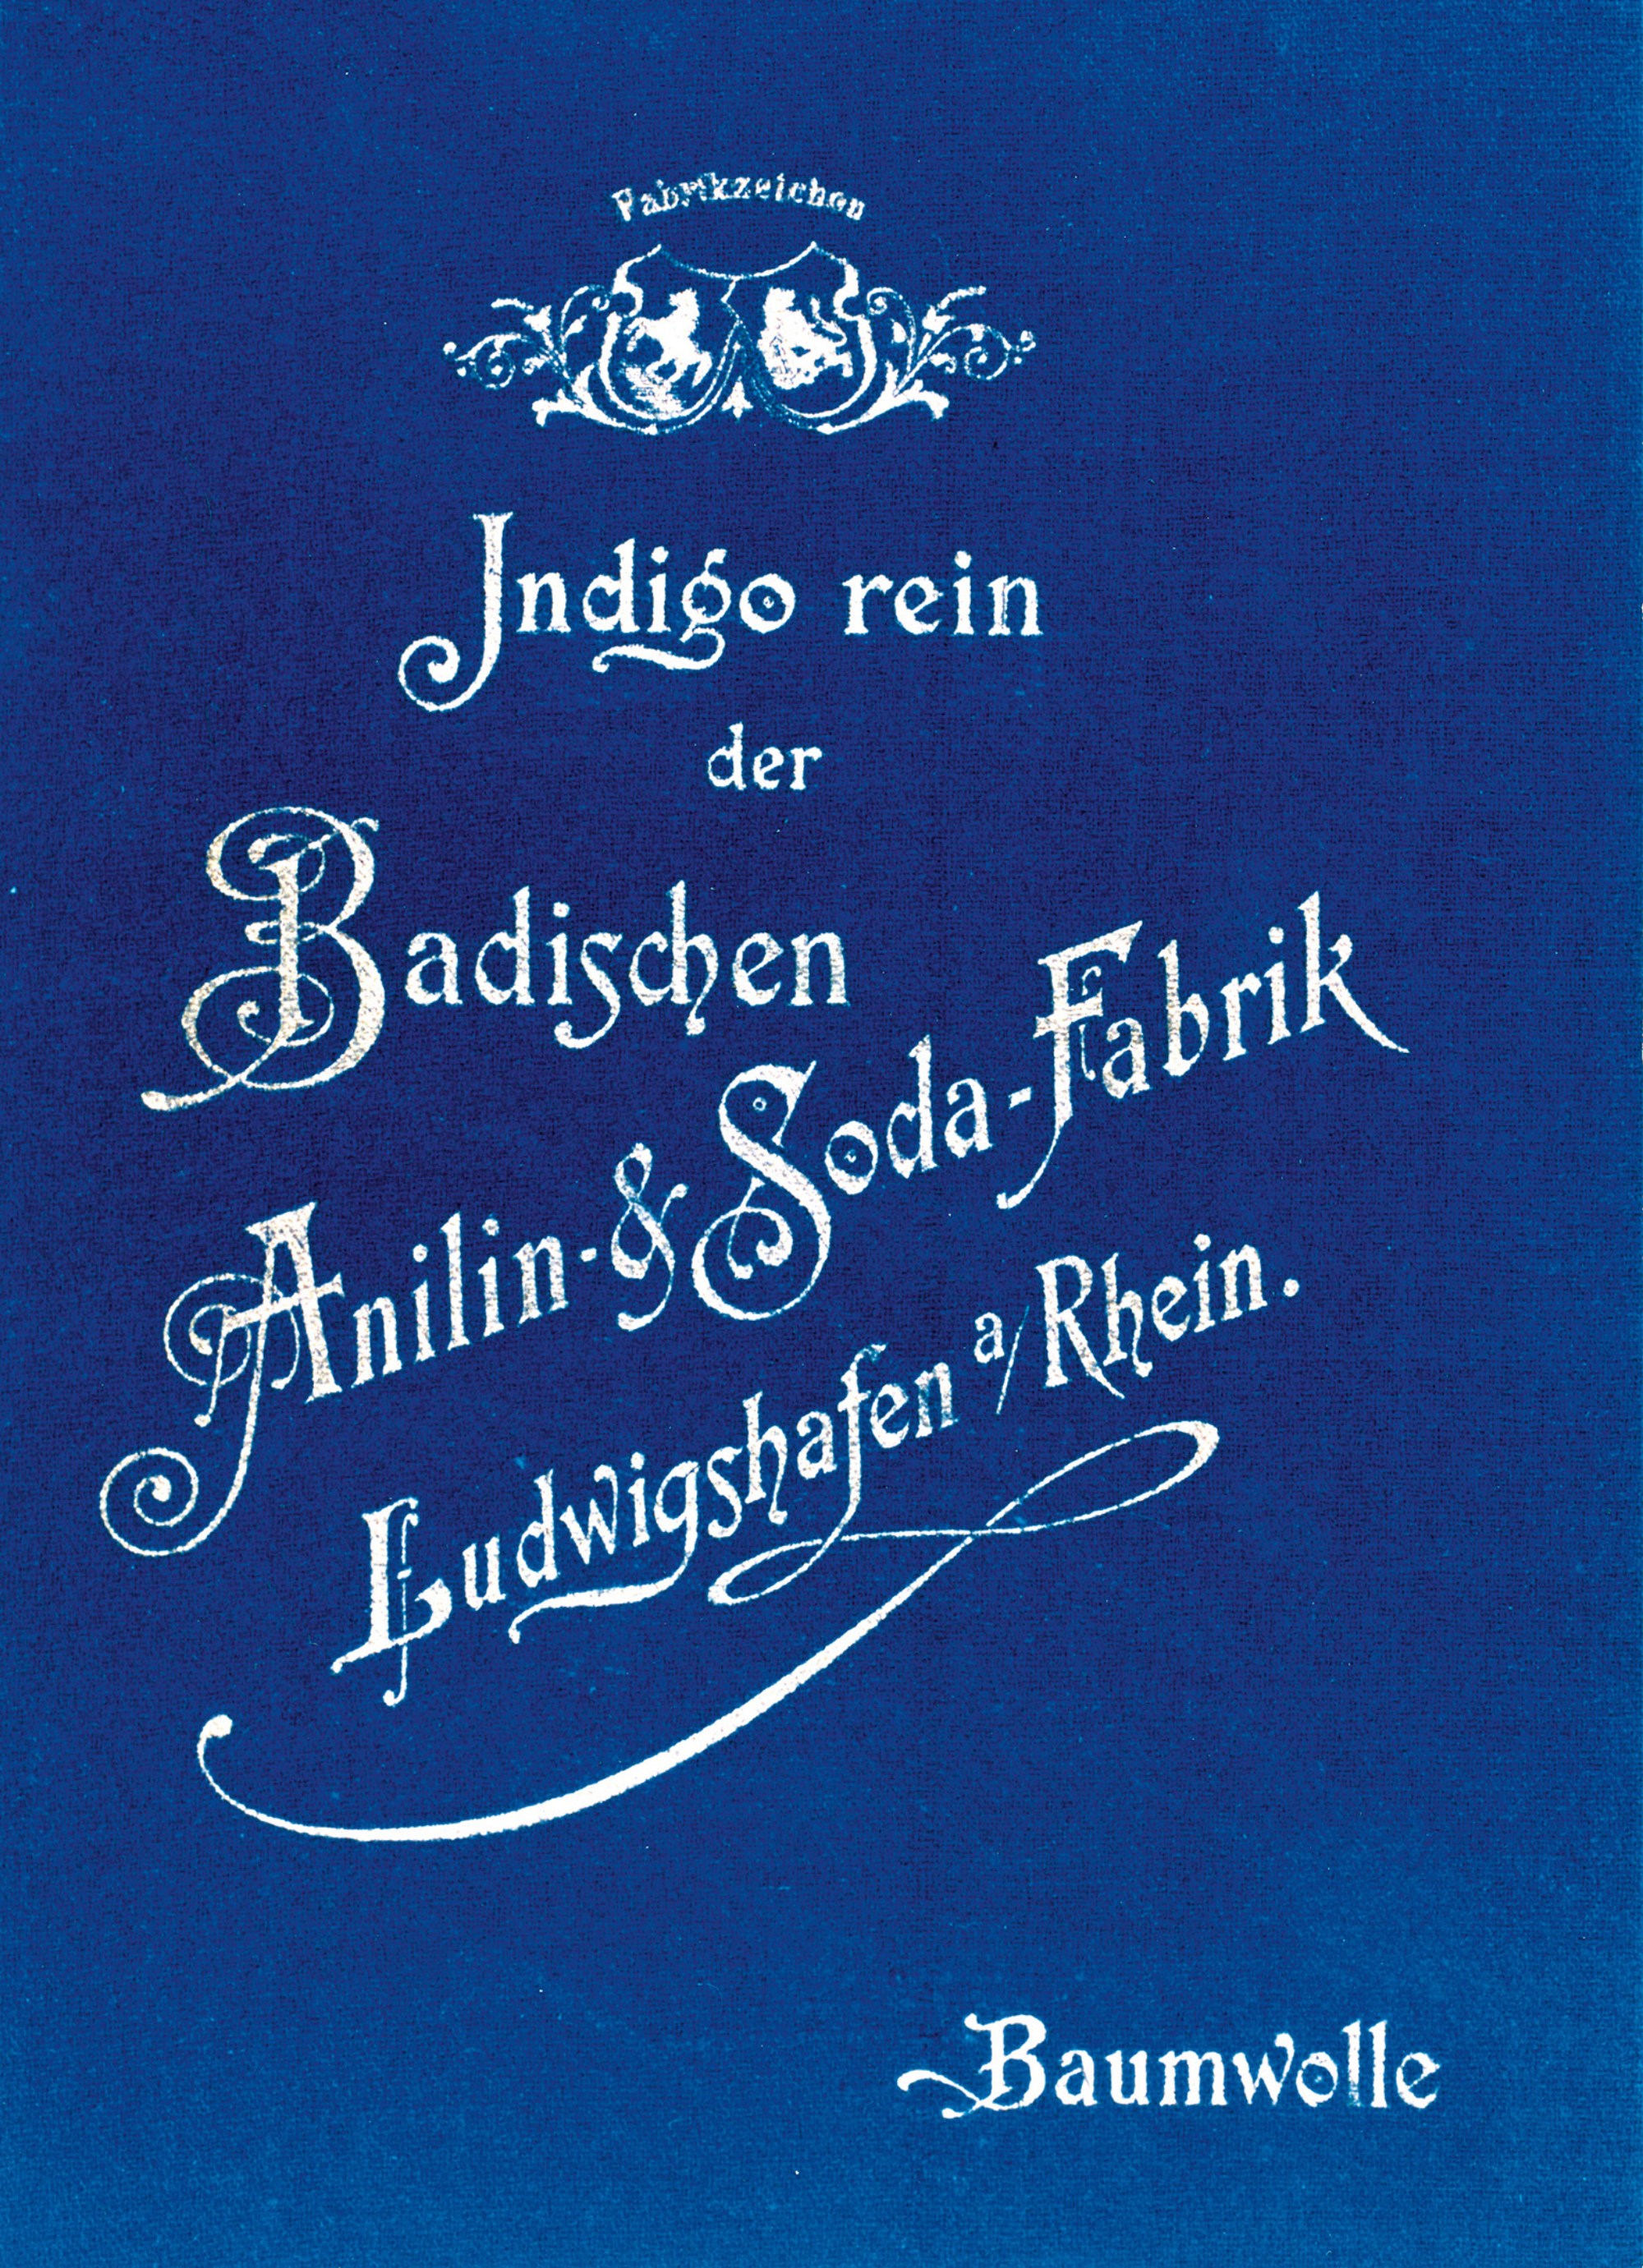 Fabrikzeichen
Jndigo rein
der
Badischen
Anilin-& Soda-Fabrik
Ludwigshafen a/Rhein.
Baumwolle